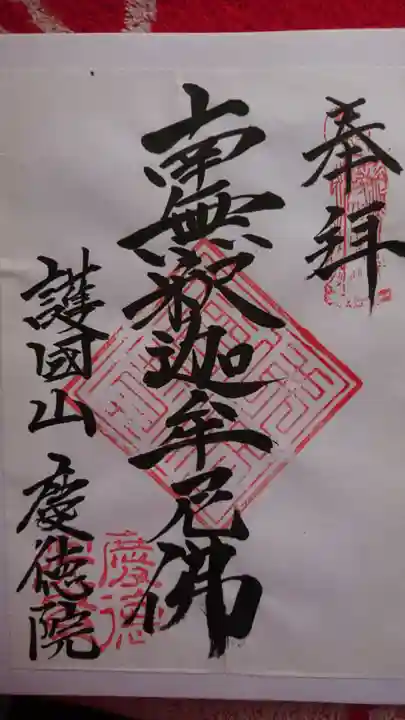 奉拜
南無釈迦牟尼佛
護國山
慶徳院
慶德